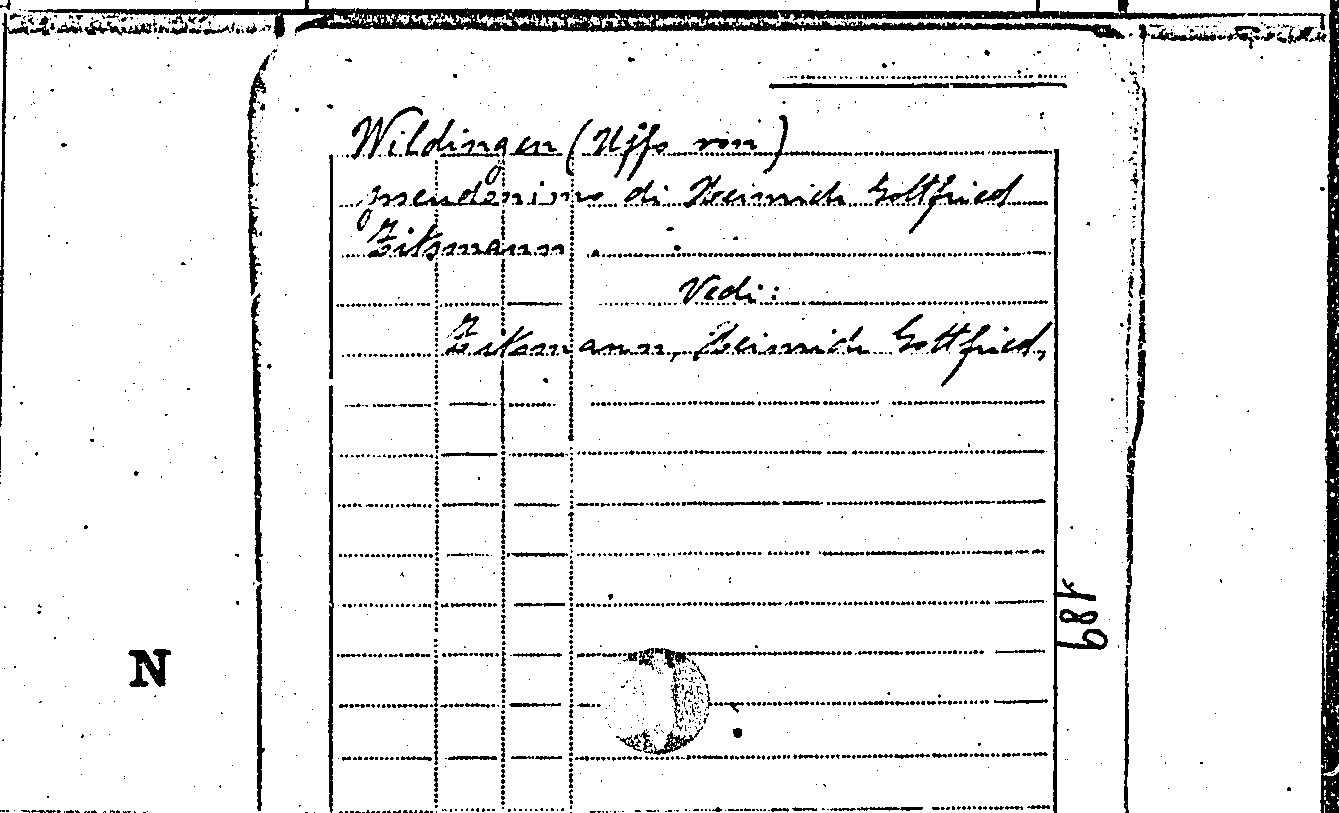 Wildingen (Uffo von)
pseudonimo di Heinrich Gottfried
Zitzmann.
Vedi:
Zitzmann, Heinrich Gottfried,
189
N